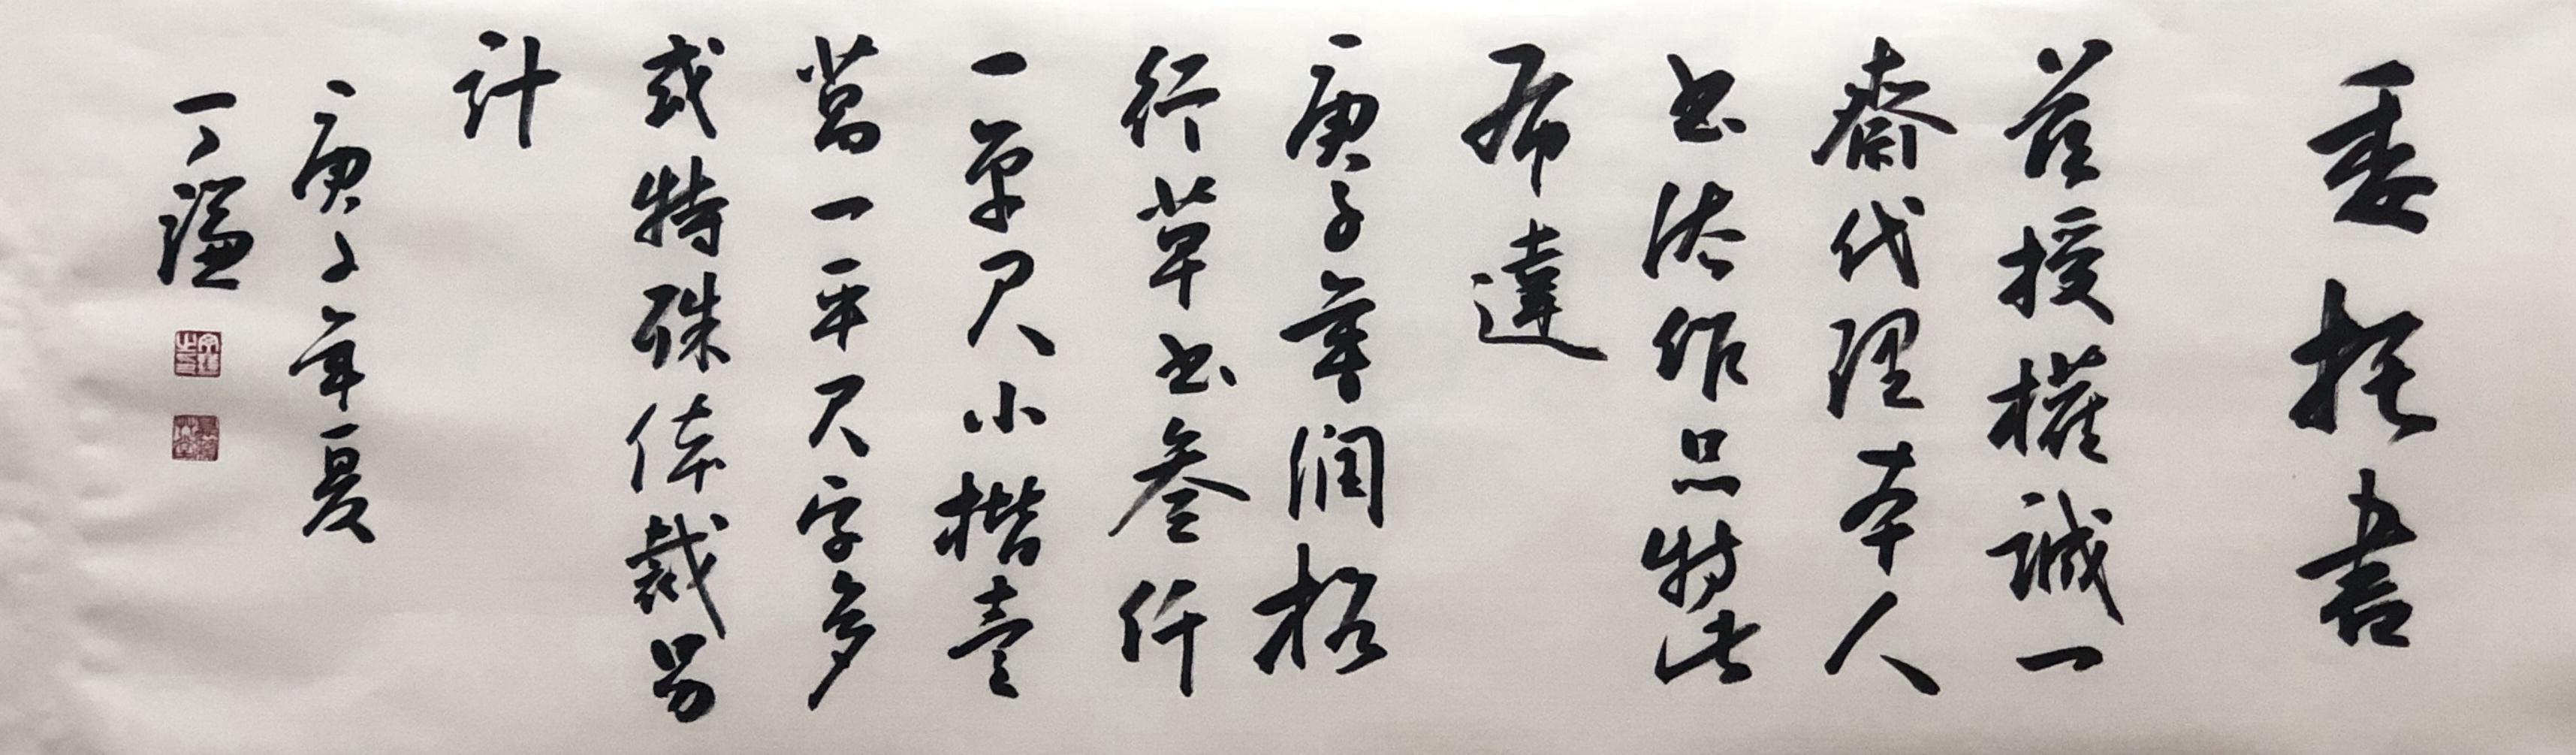 委托書
茲授權誠一
齋代理本人
书法作品特此
布達
庚子年润格
行草书叁仟
一平尺小楷壹
萬一平尺字多
或特殊体裁另
計
庚子年夏
丁謐